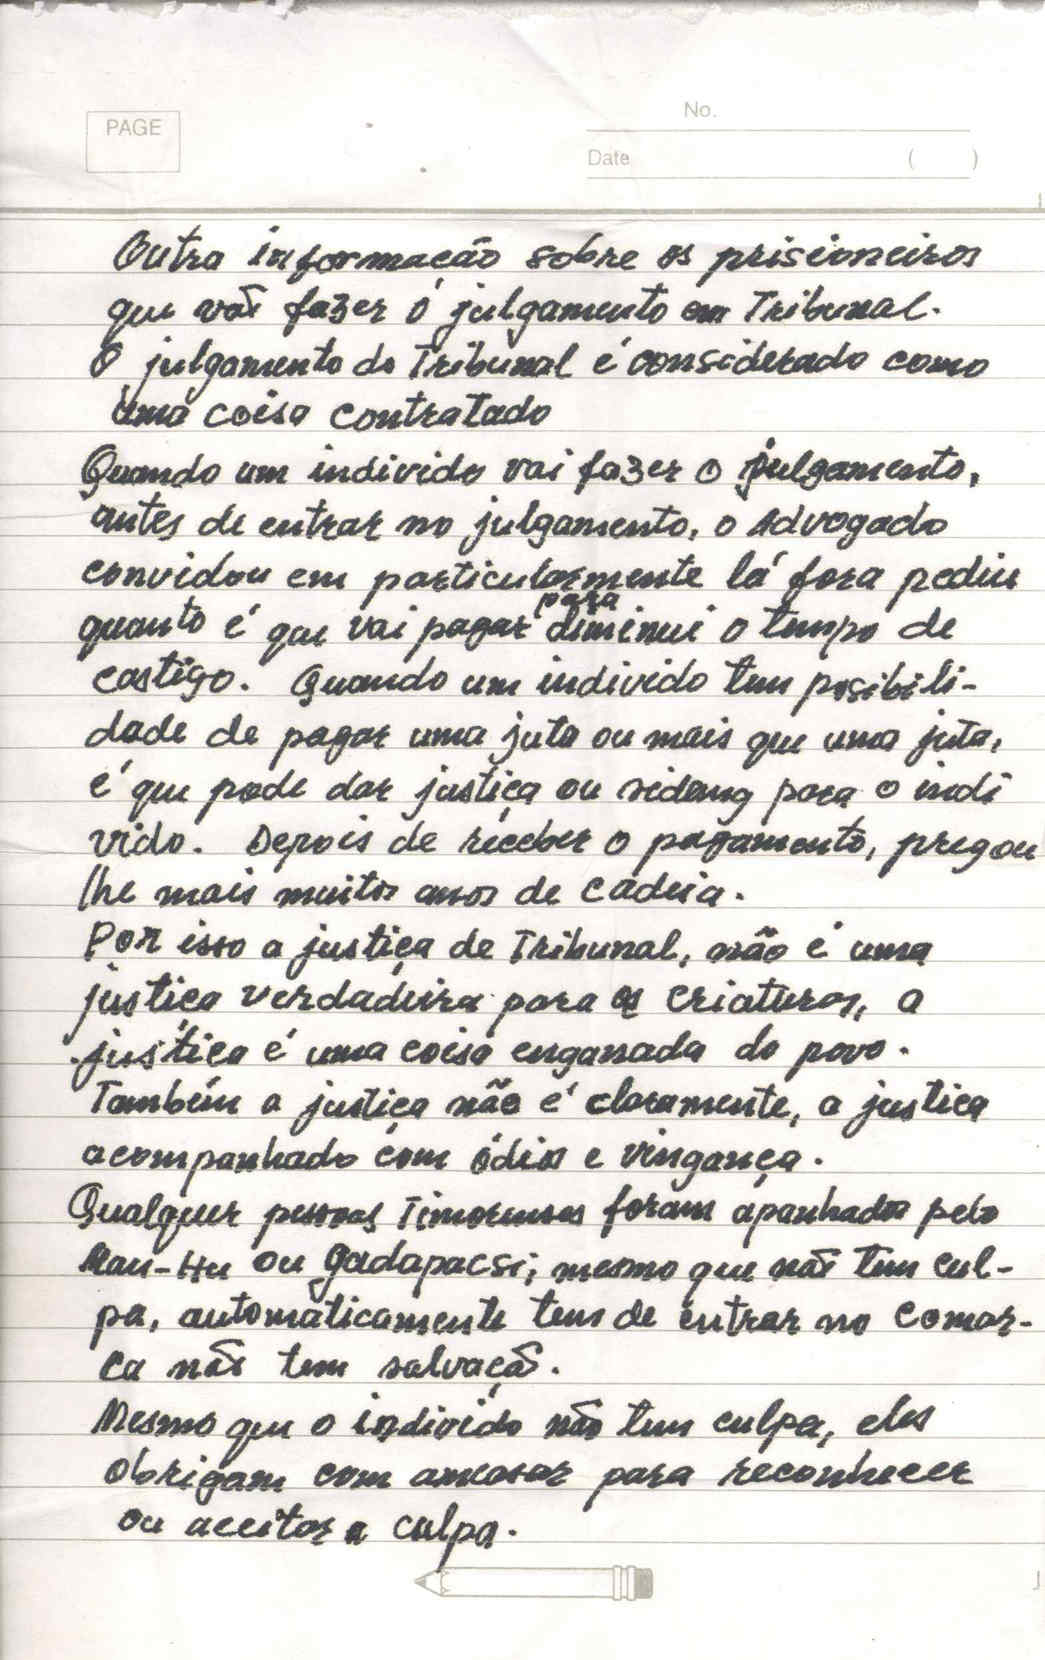 PAGE
No.
Date ( )
Outra informação sobre os prisioneiros
que vão fazer o julgamento em Tribunal.
O julgamento do Tribunal é considerado como
uma coisa contratado
Quando um individo vai fazer o julgamento,
antes de entrar no julgamento, o Advogado
convidou em particularmente lá fora pediu
para
quanto é que vai pagar diminui o tempo de
castigo. Quando um individo tem posibili-
dade de pagar uma juta ou mais que uma juta,
é que pode dar justiça ou sidang para o indi
vido. Depois de receber o pagamento, pregou
lhe mais muitos anos de cadeia.
Por isso a justiça de Tribunal, não é uma
justiça verdadeira para as criaturas, a
justiça é uma coisa enganada do povo.
Também a justiça não é claramente, a justiça
acompanhado com ódios e vingança.
Qualquer pessoas Timorenses foram apanhados pelo
Mau-Hu ou Gadapacsi, mesmo que não tem cul-
pa, automàticamente tem de entrar no Comar-
ca não tem salvação.
Mesmo que o individo não tem culpa, eles
obrigam com ameasar para reconhecer
ou aceitar a culpa.